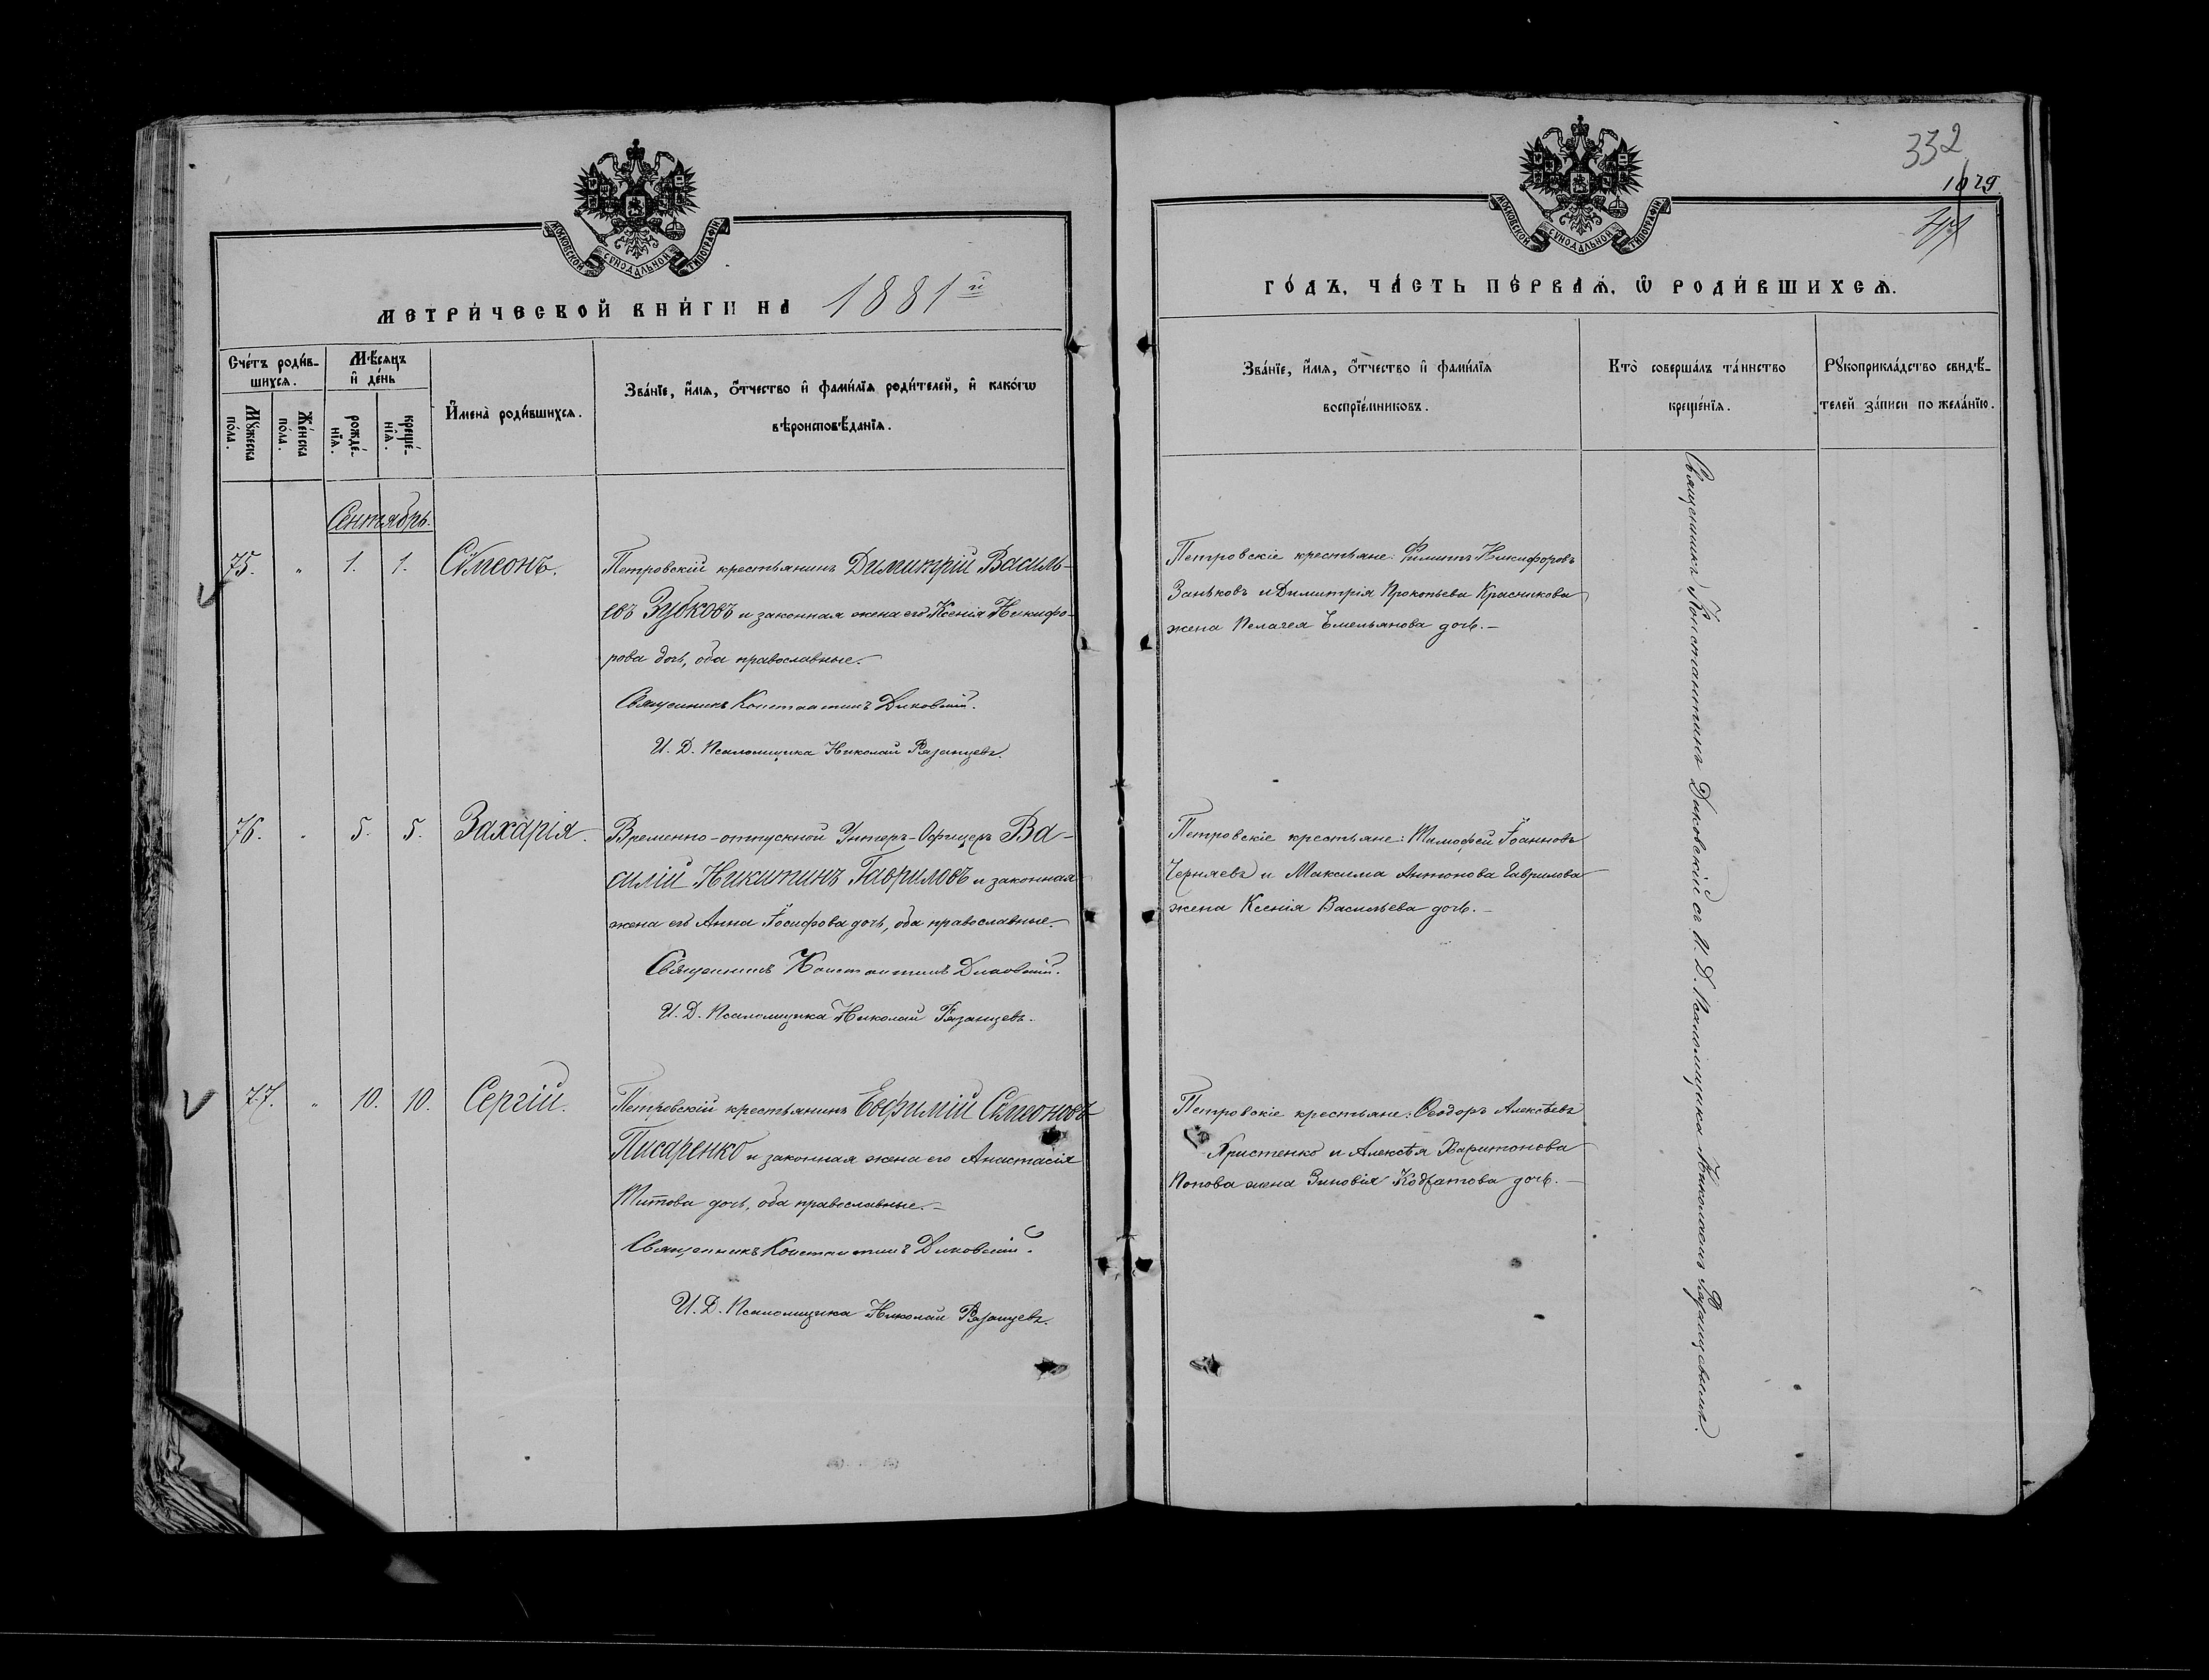 332
1029.
МОСКОВСКОЙ СѴНОДАЛЬНОЙ ТИПОГРАФІИ
МЕТРИ́ЧЕСКОЙ КНИ́ГИ НА 1881й
Сче́тъ роди́в-
шихсѧ.
Мѣ́сѧцъ
и҆ де́нь
Мꙋ́жеска
по́ла.
Же́нска
по́ла.
рожде́-
нїѧ.
креще́-
нїѧ.
И҆мена̀ роди́вшихсѧ.
Зва́нїе, и҆́мѧ, ѻ҆́тчество и҆ фами́лїѧ роди́телей, и҆ како́гѡ
вѣроисповѣ́данїѧ.
Сентябрь.
75. „ 1. 1. Сѵмеонъ.
Петровскій крестьянинъ Димитрій Василь-
евъ Зубковъ и законная жена его Ксенія Никифо-
рова дочь, оба православные.
Священникъ Константинъ Диковскій.
И. Д. Псаломщика Николай Рязанцевъ.
76. „ 5. 5. Захарія.
Временно-отпускной Унтеръ-Офицеръ Ва-
силій Никитинъ Гавриловъ и законная
жена его Анна Іосифова дочь, оба православные.
Священникъ Константинъ Диковскій.
И. Д. Псаломщика Николай Рязанцевъ.
77. „ 10. 10. Сергій.
Петровскій крестьянинъ Евфимій Сѵмеоновъ
Писаренко и законная жена его Анастасія
Титова дочь, оба православные.
Священникъ Константинъ Диковскій.
И. Д. Псаломщика Николай Рязанцевъ.
МОСКОВСКОЙ СѴНОДАЛЬНОЙ ТИПОГРАФІИ
ГО́ДЪ, ЧА́СТЬ ПЕ́РВАѦ, Ѡ҆ РОДИ́ВШИХСѦ.
Зва́нїе, и҆́мѧ, ѻ҆́тчество и҆ фами́лїѧ
воспрїе́мниковъ.
Кто̀ соверша́лъ та́инство
креще́нїѧ.
Рꙋкоприкла́дство свидѣ́-
телей за́писи по жела́нїю.
Петровскіе крестьяне: Филиппъ Никифоровъ
Заньковъ и Димитрія Прокопьева Красникова
жена Пелагея Емельянова дочь.
Петровскіе крестьяне: Тимофей Іоанновъ
Черняевъ и Максима Антонова Гаврилова
жена Ксенія Васильева дочь.
Петровскіе крестьяне: Ѳеодоръ Алексѣевъ
Христенко и Алексѣя Харитонова
Попова жена Зиновія Кодратова дочь.
Священникъ Константинъ Диковскій съ И. Д. Псаломщика Николаемъ Рязанцевымъ.